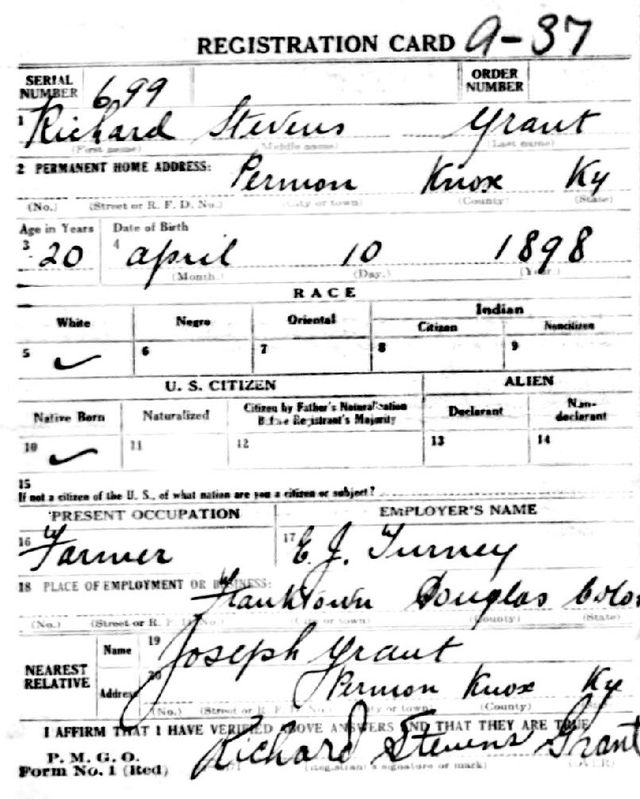 REGISTRATION CARD A-37
SERIAL NUMBER 699 ORDER NUMBER
1 Richard Stevens Grant
(First name) (Middle name) (Last name)
2 PERMANENT HOME ADDRESS: Permon Knox Ky
(No.) (Street or R. F. D. No.) (City or town) (County) (State)
Age in Years Date of Birth
3 20 4 April 10 1898
(Month.) (Day.) (Year.)
RACE
White Negro Oriental Indian
Citizen Noncitizen
5 ✓ 6 7 8 9
U. S. CITIZEN ALIEN
Native Born Naturalized Citizen by Father's Naturalization Before Registrant's Majority Declarant Non-declarant
10 ✓ 11 12 13 14
15
If not a citizen of the U. S., of what nation are you a citizen or subject?
PRESENT OCCUPATION EMPLOYER'S NAME
16 Farmer 17 E. J. Turney
18 PLACE OF EMPLOYMENT OR BUSINESS:
Franktown Douglas Colo
(No.) (Street or R. F. D. No.) (City or town) (County) (State)
NEAREST RELATIVE Name 19 Joseph Grant
Address 20 Permon Knox Ky
(No.) (Street or R. F. D. No.) (City or town) (County) (State)
I AFFIRM THAT I HAVE VERIFIED ABOVE ANSWERS AND THAT THEY ARE TRUE
P. M. G. O.
Form No. 1 (Red) Richard Stevens Grant
(Registrant's signature or mark) (OVER)